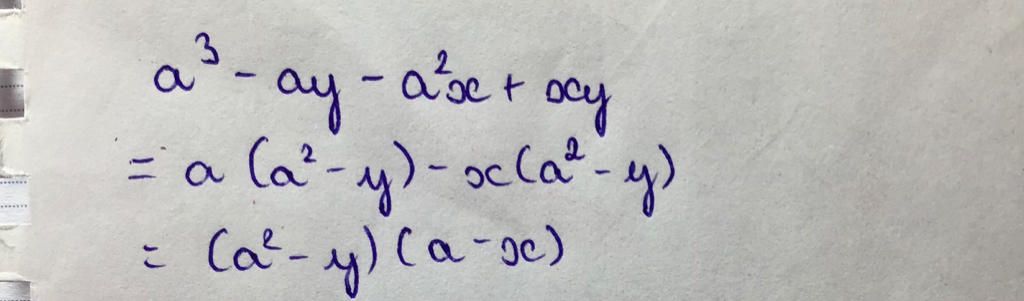 a³ - ay - a²x + xy
= a (a² - y) - x(a² - y)
= (a² - y) (a - x)